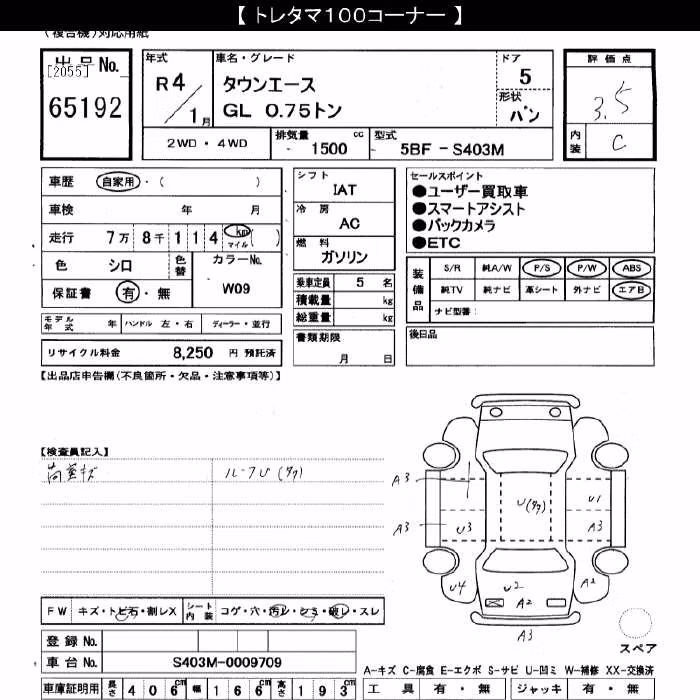 【 トレタマ100コーナー 】
(複合機)対応用紙
出品No.
[2055]
65192
年式
R4/1月
車名・グレード
タウンエース
GL 0.75トン
ドア
5
形状
バン
評価点
3.5
内装
C
2WD・4WD
排気量
1500 cc
型式
5BF - S403M
車歴 自家用・( )
車検 年 月
走行 7万8千114 km マイル ( )
色 シロ
色替
カラーNo.
W09
保証書 有・無
シフト
IAT
冷房
AC
燃料
ガソリン
乗車定員 5 名
積載量 kg
総重量 kg
セールスポイント
●ユーザー買取車
●スマートアシスト
●バックカメラ
●ETC
装備品
S/R 純A/W P/S P/W ABS
純TV 純ナビ 革シート 外ナビ エアB
ナビ型番:
モデル年式 年
ハンドル 左・右
ディーラー・並行
リサイクル料金 8,250 円 預託済
書類期限
月 日
後日品
【出品店申告欄(不良箇所・欠品・注意事項等)】
【検査員記入】
荷室キズ
ルーフU(タタ)
A3
A3
U3
U4
U(タタ)
U1
A3
U2
A2
A2
A3
スペア
FW キズ・トビ石・割レX
シート内装 コゲ・穴・汚レ・シミ・破レ・スレ
登録No.
車台No. S403M-0009709
車庫証明用 長さ 406cm 幅 166cm 高さ 193cm
A-キズ C-腐食 E-エクボ S-サビ U-凹ミ W-補修 XX-交換済
工具 有・無 ジャッキ 有・無